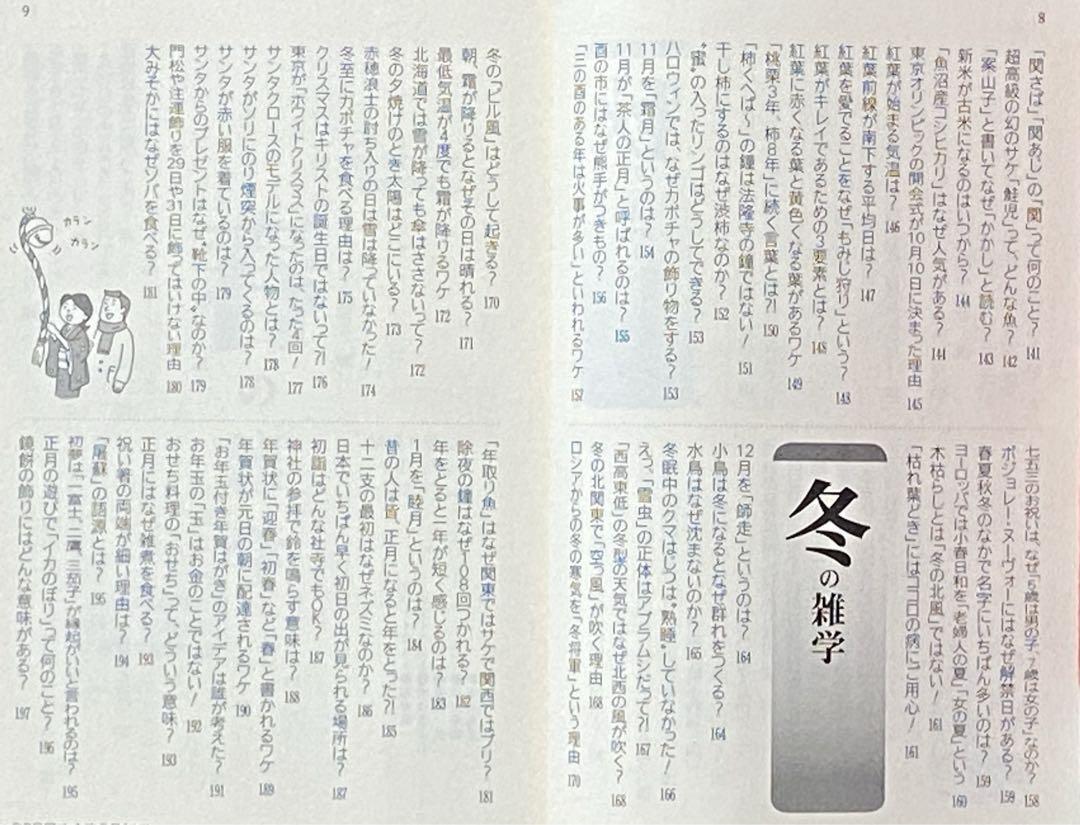 8
「関さば」「関あじ」の「関」って何のこと? 141
超高級の幻のサケ「鮭児」って、どんな魚? 142
「案山子」と書いてなぜ「かかし」と読む? 143
新米が古米になるのはいつから? 144
「魚沼産コシヒカリ」はなぜ人気がある? 144
東京オリンピックの開会式が10月10日に決まった理由 145
紅葉が始まる気温は? 146
紅葉前線が南下する平均日は? 147
紅葉を愛でることをなぜ「もみじ狩り」という? 148
紅葉がキレイであるための3要素とは? 148
紅葉に赤くなる葉と黄色くなる葉があるワケ 149
「桃栗3年、柿8年」に続く言葉とは?! 150
「柿くへば〜」の鐘は法隆寺の鐘ではない! 151
干し柿にするのはなぜ渋柿なのか? 152
〝蜜〟の入ったリンゴはどうしてできる? 153
ハロウィンでは、なぜカボチャの飾り物をする? 153
11月を「霜月」というのは? 154
11月が「茶人の正月」と呼ばれるのは? 155
酉の市にはなぜ熊手がつきもの? 156
「三の酉のある年は火事が多い」といわれるワケ 157
七五三のお祝いは、なぜ「5歳は男の子、7歳は女の子」なのか? 158
ボジョレー・ヌーヴォーにはなぜ解禁日がある? 159
春夏秋冬のなかで名字にいちばん多いのは? 159
ヨーロッパでは小春日和を「老婦人の夏」「女の夏」という 160
木枯らしとは「冬の北風」ではない! 161
「枯れ葉どき」にはココロの病にご用心! 161
冬の雑学
12月を「師走」というのは? 164
小鳥は冬になるとなぜ群れをつくる? 164
水鳥はなぜ沈まないのか? 165
冬眠中のクマはじつは〝熟睡〟していなかった! 166
えっ、「雪虫」の正体はアブラムシだって?! 167
「西高東低」の冬型の天気ではなぜ北西の風が吹く? 168
冬の北関東で「空っ風」が吹く理由 168
ロシアからの冬の寒気を「冬将軍」という理由 170
9
冬の「ビル風」はどうして起きる? 170
朝、霜が降りるとなぜその日は晴れる? 171
最低気温が4度でも霜が降りるワケ 172
北海道では雪が降っても傘はささないって? 172
冬の夕焼けのとき太陽はどこにいる? 173
赤穂浪士の討ち入りの日は雪は降っていなかった! 174
冬至にカボチャを食べる理由は? 175
クリスマスはキリストの誕生日ではないって?! 176
東京が「ホワイトクリスマス」になったのは、たった4回! 177
サンタクロースのモデルになった人物とは? 178
サンタがソリにのり煙突から入ってくるのは? 178
サンタが赤い服を着ているのは? 179
サンタからのプレゼントはなぜ〝靴下の中〟なのか? 179
門松や注連飾りを29日や31日に飾ってはいけない理由 180
大みそかにはなぜソバを食べる? 181
カラン
カラン
「年取り魚」はなぜ関東ではサケで関西ではブリ? 181
除夜の鐘はなぜ108回つかれる? 182
年をとると一年が短く感じるのは? 183
1月を「睦月」というのは? 184
昔の人は皆、正月になると年をとった?! 185
十二支の最初はなぜネズミなのか? 186
日本でいちばん早く初日の出が見られる場所は? 187
初詣はどんな社寺でもOK? 187
神社の参拝で鈴を鳴らす意味は? 188
年賀状に「迎春」「初春」など「春」と書かれるワケ 189
年賀状が元日の朝に配達されるワケ 190
「お年玉付き年賀はがき」のアイデアは誰が考えた? 191
お年玉の「玉」はお金のことではない! 192
おせち料理の「おせち」って、どういう意味? 193
正月にはなぜ雑煮を食べる? 193
祝い箸の両端が細い理由は? 194
「屠蘇」の語源とは? 195
初夢は「一富士二鷹、三茄子」が縁起がいいと言われるのは? 195
正月の遊びで「イカのぼり」って何のこと? 196
鏡餅の飾りにはどんな意味がある? 197